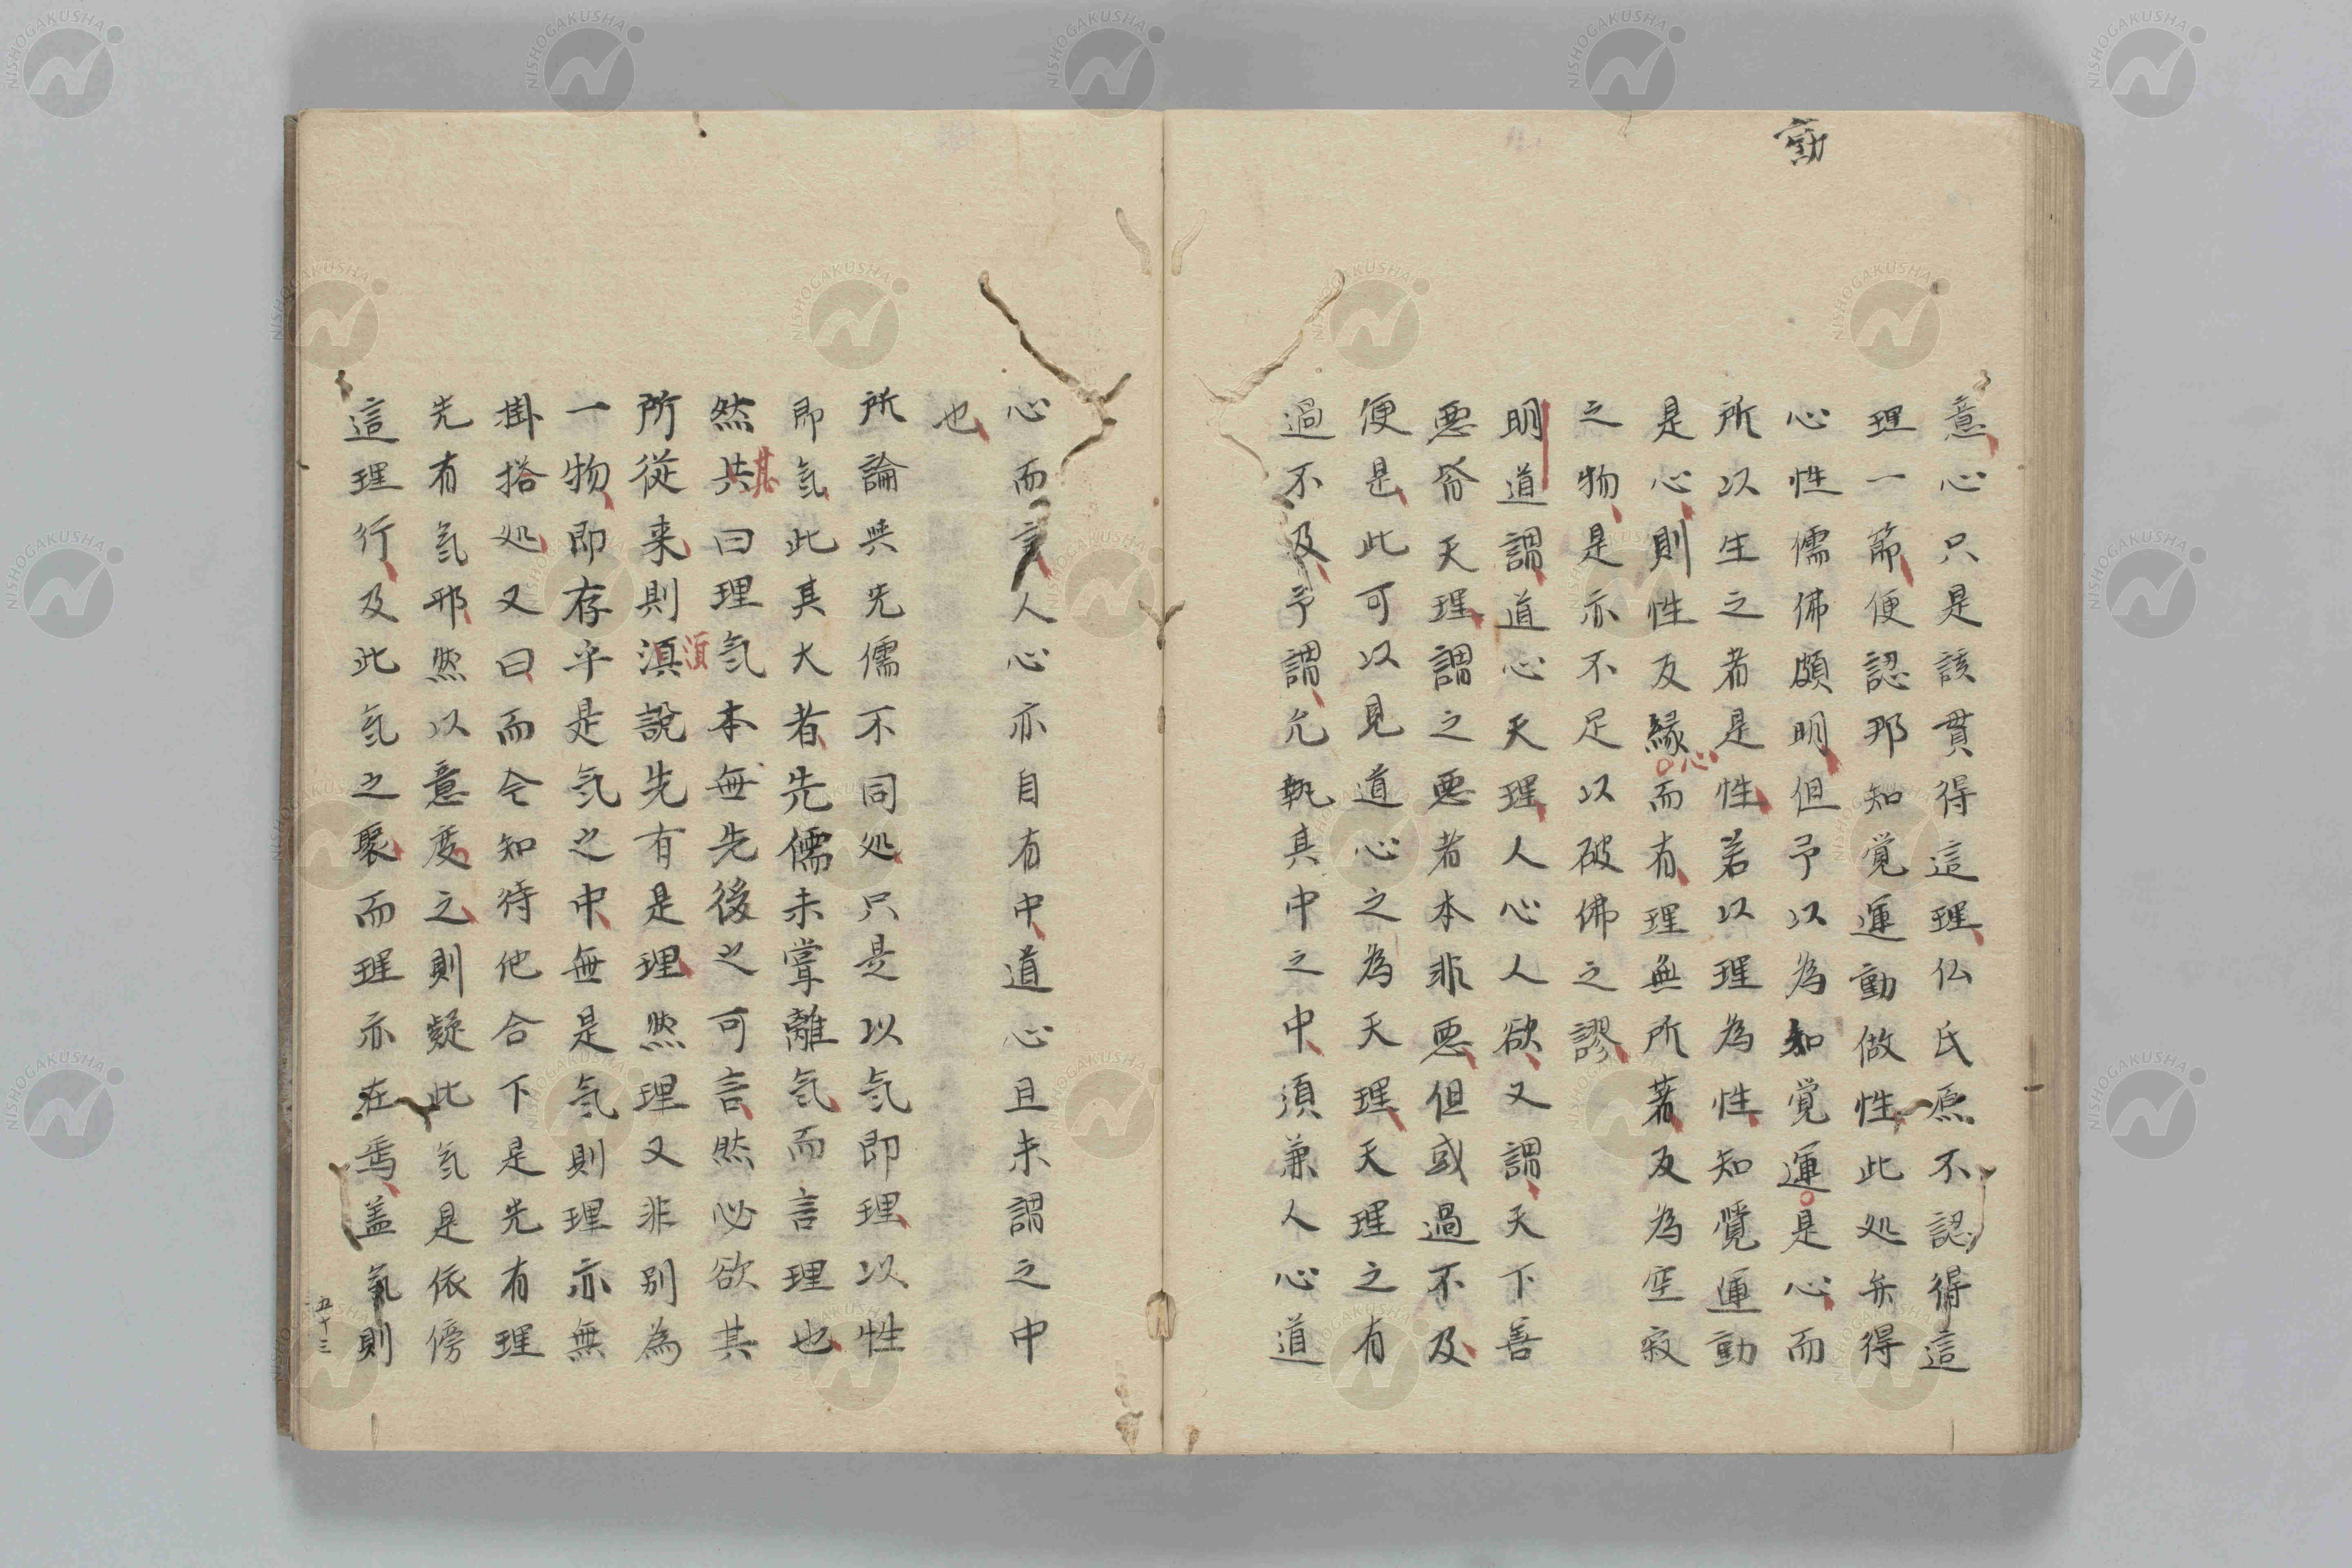 動
意心只是該貫得這理仏氏原不認得這
理一節便認那知覚運動做性此処弁得
心性儒佛頗明但予以為知覚運是心而
所以生之者是性若以理為性知覺運動
是心則性反縁心而有理無所著反為空寂
之物是亦不足以破佛之謬
明道謂道心天理人心人欲又謂天下善
悪皆天理謂之悪者本非悪但或過不及
便是此可以見道心之為天理天理之有
過不及予謂允執其中之中須兼人心道
心而言人心亦自有中道心且未謂之中
也
所論與先儒不同処只是以氣即理以性
即氣此其大者先儒未嘗離氣而言理也
然共其曰理氣本無先後之可言然必欲其
所從来則湏須說先有是理然理又非別為
一物即存乎是氣之中無是氣則理亦無
掛搭処又曰而今知得他合下是先有理
先有氣邪然以意度之則疑此氣是依傍
這理行及此氣之聚而理亦在焉盖氣則
五十三
NISHOGAKUSHA